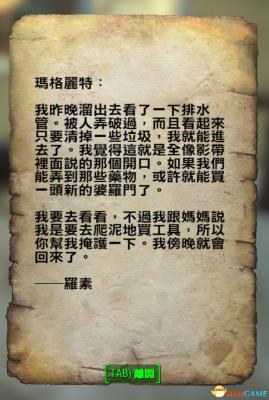 瑪格麗特：
我昨晚溜出去看了一下排水
管。被人弄破過，而且看起來
只要清掉一些垃圾，我就能進
去了。我覺得這就是全像影帶
裡面說的那個開口。如果我們
能弄到那些藥物，或許就能買
一頭新的婆羅門了。
我要去看看，不過我跟媽媽說
我是要去爬泥地買工具，所以
你幫我掩護一下。我傍晚就會
回來了。
——羅素
[TAB) 離開]
SUMGAME